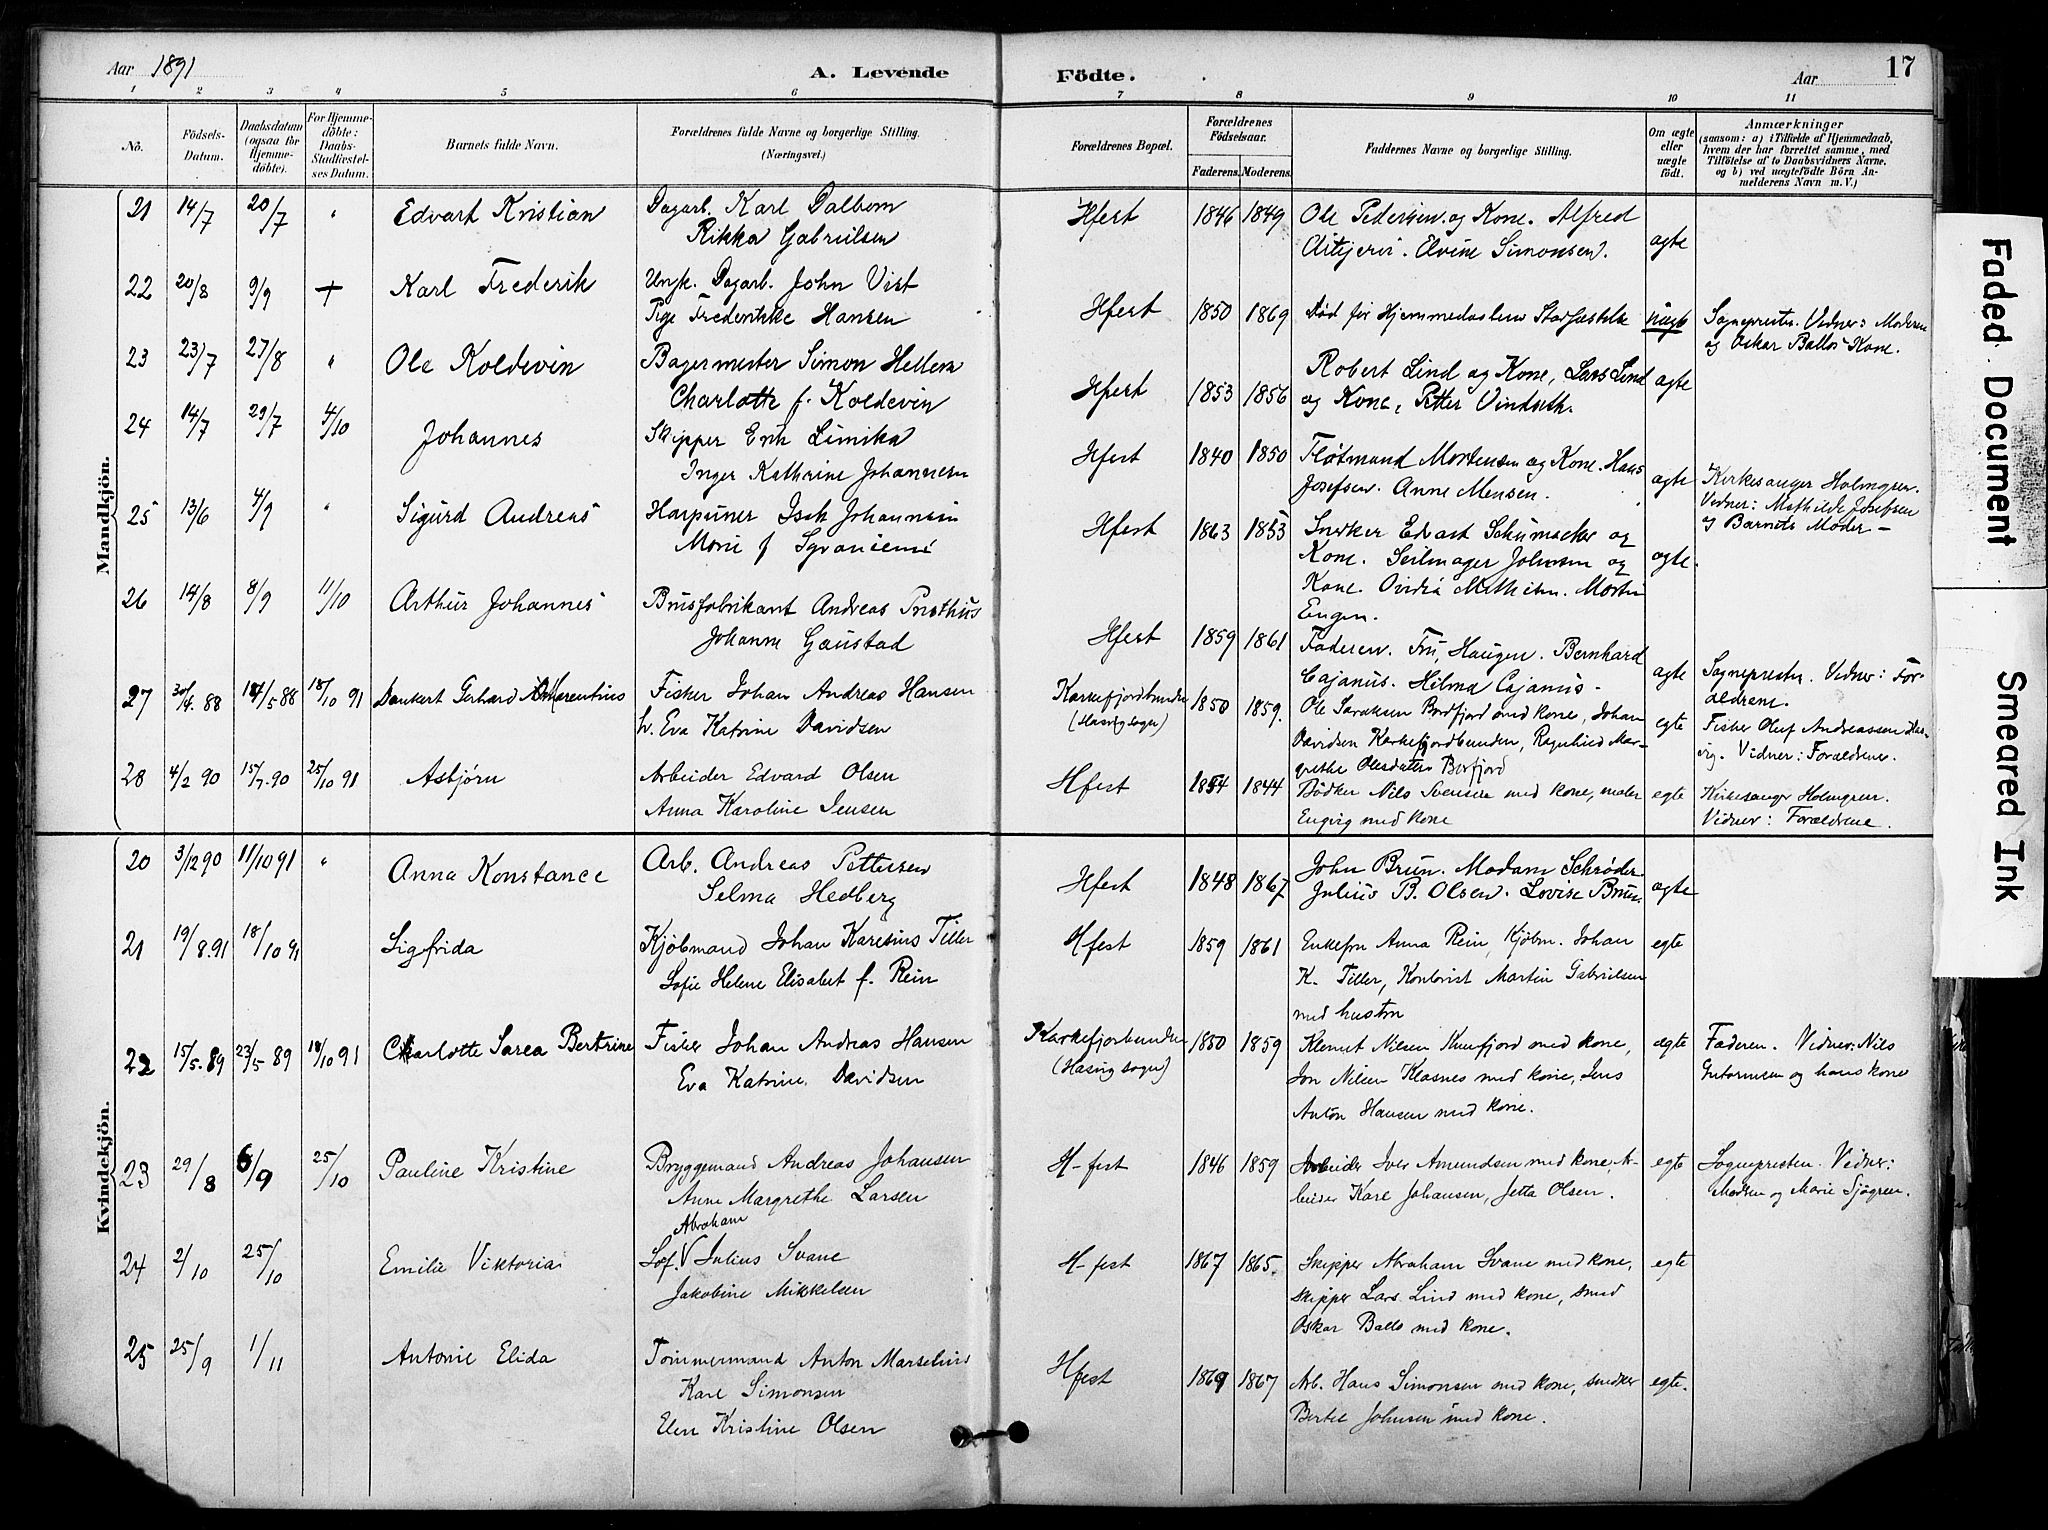 Aar 1891
A. Levende Födte.
Aar
17
1 2 3 4 5 6 7 8 9 10 11
No.
Födsels-
Datum.
Daabsdatum
(ogsaa for
Hjemme-
döbte).
For Hjemme-
döbte:
Daabs-
Stadfæstel-
ses Datum.
Barnets fulde Navn.
Forældrenes fulde Navne og borgerlige Stilling.
(Næringsvei.)
Forældrenes Bopæl.
Forældrenes
Födselsaar.
Faderens. Moderens.
Faddernes Navne og borgerlige Stilling.
Om ægte
eller
uægte
födt.
Anmærkninger
(saasom: a) i Tilfælde af Hjemmedaab,
hvem der har forrettet samme, med
Tilföielse af to Daabsvidners Navne.
og b) ved uægtefödte Börn An-
melderens Navn m. V.)
Mandkjön.
21 14/7 20/7 " Edvart Kristian Dagarb. Karl Dalbom Hfest 1846 1849 Ole Pedersen og Kone. Alfred ægte
Rikka Gabrielsen Elvine Simonsen.
22 20/8 9/9 + Karl Frederik Ungk. Dagarb. John Vist Hfest 1850 1869 Død før Hjemmedaabens Stadfæstelse uægte Sognepresten. Vidner: Moderen
Pige Frederikke Hansen og Oskar Ballos Kone.
23 23/7 27/8 " Ole Koldevin Bagermester Simon Hellem Hfest 1853 1856 Robert Lind og Kone, Lars Lind ægte
Charlotte f. Koldevin og Kone, Petter Vindseth.
24 14/7 29/7 4/10 Johannes Skipper Erik Limika Hfest 1840 1850 Fløtmand Mortensen og Kone. Hans ægte Kirkesanger Holmgren.
Inger Kathrine Johannesen Josefsen. Anne Mensen. Vidner: Mathilde Josefsen
og Barnets Moder -
25 13/6 4/9 " Sigurd Andreas Harpuner Isak Johannesen Hfest 1863 1853 Snedker Edvart Schumacker og ægte.
Kone. Seilmager Johnsen og
Kone. Ovidia Mathisen. Martin
Engen.
26 14/8 8/9 11/10 Arthur Johannes Brusfabrikant Andreas Hfest 1859 1861 Faderen. Fru Haugen. Bernhard ægte Sognepresten. Vidner: For-
Johanne Gaustad Cajanus. Hilma Cajanus. ældrene.
27 30/4.88 14/5 88 18/10 91 Dankert Gerhard Fisker Johan Andreas Hansen Karkefjordbunden 1850 1859. Ole Saraksen med kone, Johan egte Fisker Oluf Andreassen Has-
h. Eva Katrine Davidsen (Hasvig sogn) Davidsen Karkefjordbunden, Ragnhild Mar- vig. Vidner: Forældrene.
grethe Olesdatter Borfjord
28 4/2 90 15/7.90 25/10 91 Asbjørn Arbeider Edvard Olsen Hfest 1854 1844 Bødker Nils Svensen med kone, maler egte Kirkesanger Holmgren.
Anna Karoline Jensen Engvig med kone Vidner: Forældrene.
Kvindekjön.
20 3/12 90 11/10 91 " Anna Konstance Arb. Andreas Pettersen Hfest 1848 1867 John Brun. Madam Schrøder. ægte
Selma Hedberg Julius B. Olsen. Lovise Brun
21 19/8.91 18/10 91 Sigfrida Kjøbmand Johan Karelius Tiller Hfest 1859 1861 Enkefru Anna Rein, Kjøbm. Johan egte
Sofie Helene Elisabet f. Rein K. Tiller, Kontorist Martin Gabrielsen
med hustru
22 15/5.89 23/5 89 18/10 91 Charlotte Sarea Bertrine Fisker Johan Andreas Hansen Karkefjorbunden 1850 1859 Klemet Nilsen med kone, ægte Faderen. Vidner: Nils
Eva Katrine Davidsen (Hasvig sogn) Jon Nilsen med kone, Jens og hans kone
Anton Hansen med kone.
23 29/8 6/9 25/10 Pauline Kristine Bryggemand Andreas Johansen H-fest 1846 1859 Arbeider Iver Amundsen med kone, Ar- egte Sognepresten. Vidner:
Anne Margrethe Larsen beider Karl Johansen, Jetta Olsen. Madsen og Marie Sjøgren.
24 2/10 25/10 Emilie Viktoria Søf. Abraham Julius Svane H-fest 1867 1865. Skipper Abraham Svane med kone, egte
Jakobine Mikkelsen skipper Lars Lind med kone, smed
Oskar Ballo med kone.
25 25/9 1/11 Antonie Elida Tømmermand Anton Marselius Hfest 1869 1867 Arb. Hans Simonsen med kone, snedker egte.
Karl Simonsen Bertel Johnsen med kone.
Elen Kristine Olsen
Faded Document
Smeared Ink